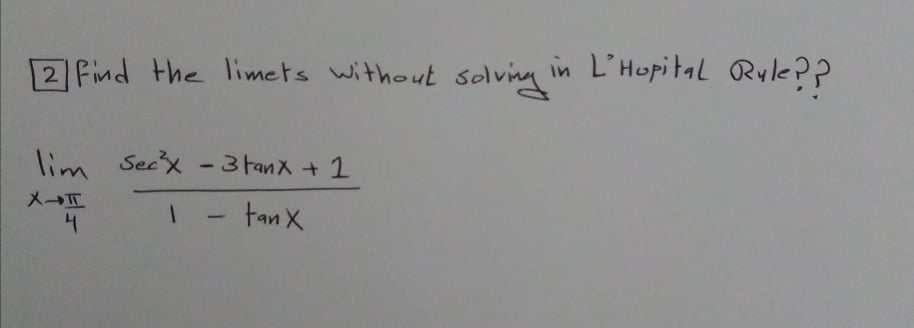 2 Find the limets without solving in L'Hopital Rule??
lim sec²x - 3tanx + 1
x→π/4 1 - tanx